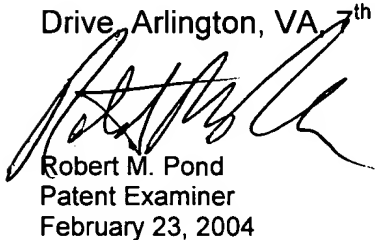 Drive, Arlington, VA, 7th
Robert M. Pond
Patent Examiner
February 23, 2004